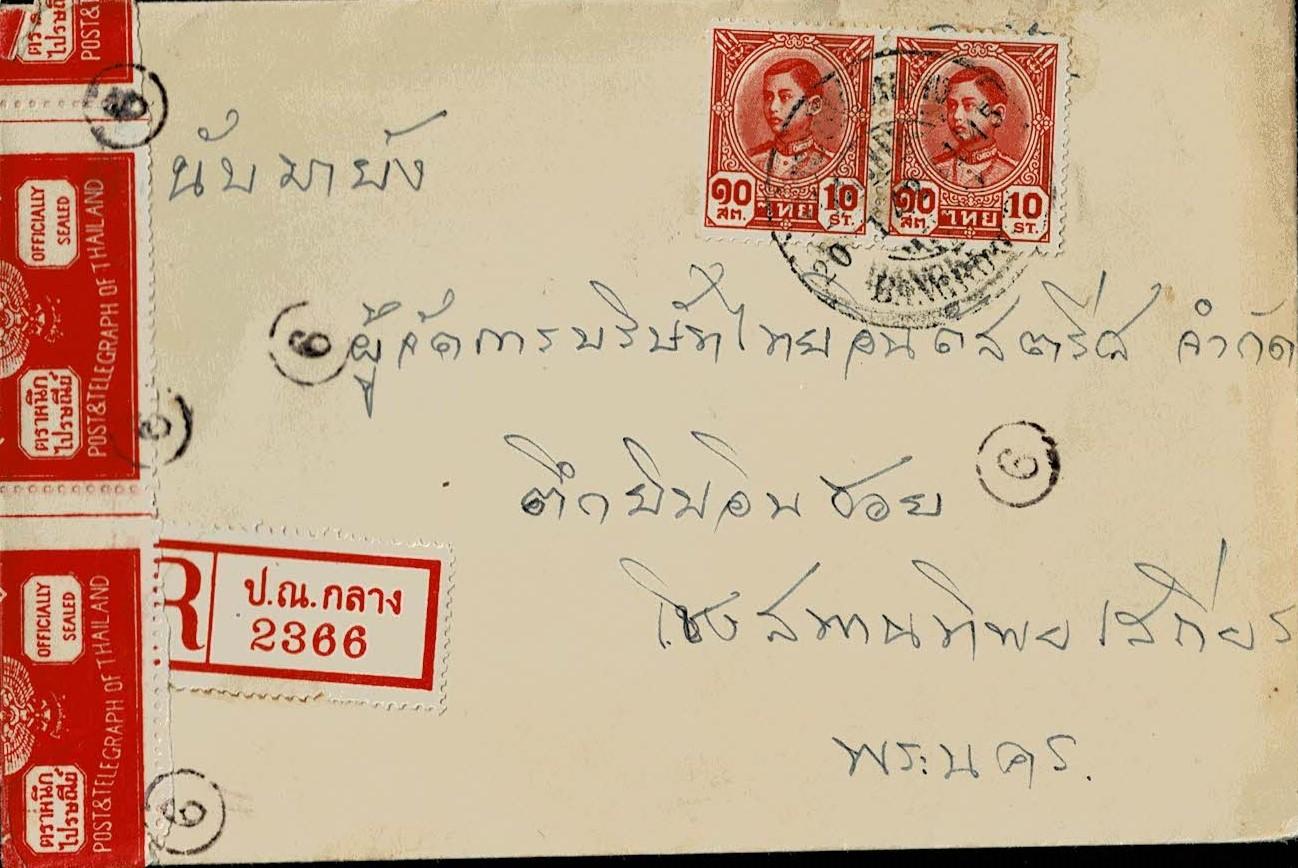 ตราหนึก
ไปรษณีย์
POST&
นับมายัง
๑๐ สต. ไทย 10 ST.
๑๐ สต. ไทย 10 ST.
20
BANGKOK
OFFICIALLY
SEALED
ตราหนึก
ไปรษณีย์
POST&TELEGRAPH OF THAILAND
6
ผู้จัดการบริษัทไทยอินดัสตรีส จำกัด
ตึกยิบอินซอย
เชิงสพานพิทยเสถียร
พระนคร.
R
ป.ณ.กลาง
2366
OFFICIALLY
SEALED
ตราหนึก
ไปรษณีย์
POST&TELEGRAPH OF THAILAND
6